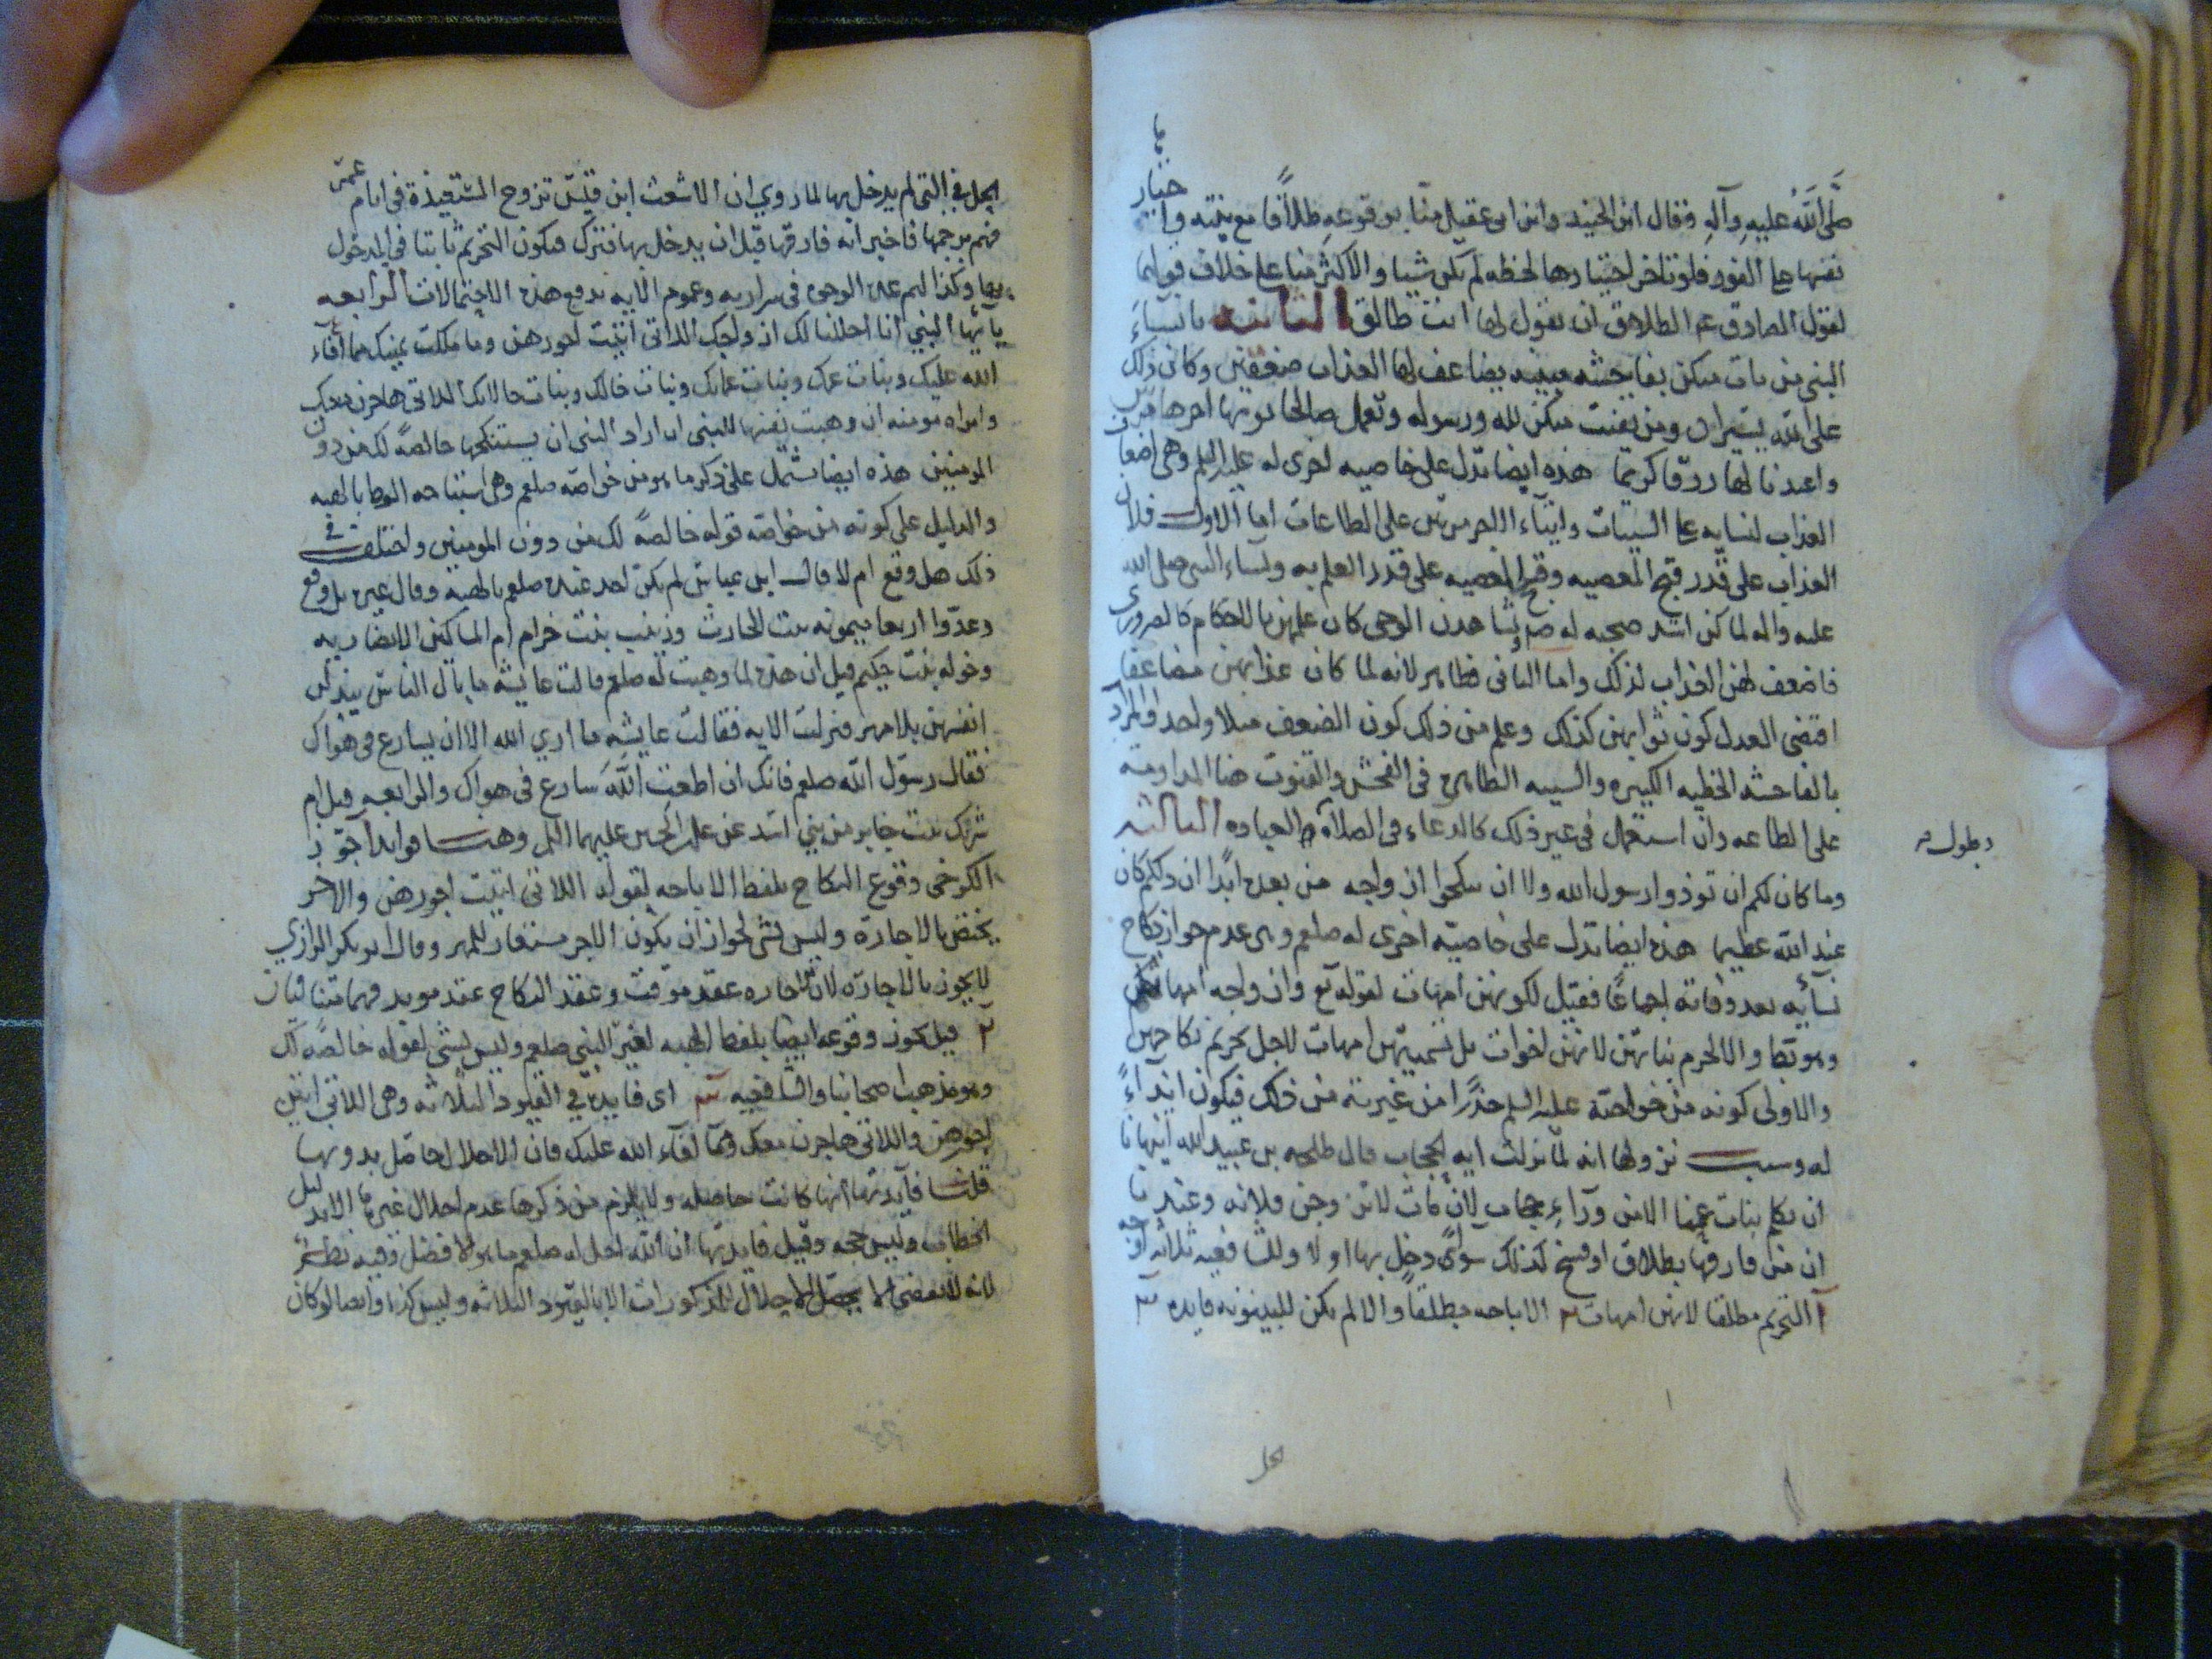 صلى الله عليه وآله وقال ابن الجنيد وابن ابى عقيل منا بوقوعه طلاقا مع نيته واختيار
نفسها على الفور فلو تاخر اختيارها لحظه لم يكن شيا والاكثر منا على خلاف قولهما
لقول الصادق عم الطلاق ان يقول لها انت طالق الثانيه يا نساء
النبى من يات منكن بفاحشه مبينه يضاعف لها العذاب ضعفين وكان ذلك
على الله يسيرا ومن يقنت منكن لله ورسوله وتعمل صالحا نوتها اجرها مرتين
واعتدنا لها رزقا كريما هذه ايضا تدل على خاصيه اخرى له عليه السلم وهى اضعاف
العذاب لنسايه على السيئات وايتاء الاجر مرتين على الطاعات اما الاول فلان
العذاب على قدر قبح المعصيه وقبح المعصيه على قدر العلم به ونساء النبى صلى الله
عليه واله لما كن اشد صحبه له ويشاهدن الوحى كان علمهن بالاحكام كالضرورى
فاضعف لهن العذاب لذلك واما الثانى فظاهر لانه لما كان عذابهن مضاعفا
اقتضى العدل كون ثوابهن كذلك وعلم من ذلك كون الضعف مثلا واحدا والمراد
بالفاحشه الخطيه الكبيره والسيئه الظاهره فى الفحش والقنوت هنا المداومة
على الطاعه وان استعمل فى غير ذلك كالدعاء فى الصلاة والعباده الثالثه
وطول
وما كان لكم ان توذوا رسول الله ولا ان تنكحوا ازواجه من بعده ابدا ان ذلكم كان
عند الله عظيما هذه ايضا تدل على خاصيته اخرى له صلعم وهى عدم جواز نكاح
نسآئه بعد وفاته اجماعا فقيل لكونهن امهات لقوله تع وازواجه امهاتهم
والا لحرم بناتهن لانهن اخوات بل تسميتهن امهات لاجل تحريم نكاحهن
والاولى كونه من خواصه عليه السلم حذرا من غيرته من ذلك فيكون ايذاءً
له وسبب نزولها انه لما نزلت ايه الحجاب قال طلحه بن عبيد الله اينهانا
ان نكلم بنات عمنا الا من وراء حجاب لان مات لاتزوجن فلانه وعندنا
ان من فارقها بطلاق او فسخ كذلك سواء دخل بها او لا وللشافعيه ثلاثه اوجه
١ التحريم مطلقا لانهن امهات ٢ الاباحه مطلقا والا لم يكن للبينونه فايده ٣
يحل فى التى لم يدخل بها لما روى ان الاشعث ابن قيس تزوج المستعيذة فى ايام عمر
فهم برجمها فاخبر انه فارقها قبل ان يدخل بها فترك فيكون التحريم ثابتا فى المدخول
بها وكذا لهم هذه الوجوه فى سراريه وعموم الايه يدفع هذه الاحتمالات الرابعه
يا ايها النبي انا احللنا لك ازواجك اللاتى اتيت اجورهن وما ملكت يمينك مما أفاء
الله عليك وبنات عمك وبنات عماتك وبنات خالك وبنات خالاتك اللاتى هاجرن معك
وامراه مومنه ان وهبت نفسها للنبى ان اراد النبى ان يستنكحها خالصةً لك من دون
المومنين هذه ايضا تشتمل على ذكر ما هو من خواصه صلعم وهى استباحه الوطا بالهبه
والدليل على كونه من خواصه قوله خالصةً لك من دون المومنين واختلف فى
ذلك هل وقع ام لا قال ابن عباس لم يكن احد عنده صلعم بالهبه وقال غيره بل وقع
وعدوا اربعا ميمونه بنت الحارث وزينب بنت خزام ام المساكين الانصاريه
وخوله بنت حكيم قيل ان هذه لما وهبت له صلعم قالت عايشه ما بال النساء يبذلن
انفسهن بلا مهر فنزلت الايه فقالت عايشه ما ارى الله الا ان يسارع فى هواك
فقال رسول الله صلعم فانك ان اطعت الله سارع فى هواك والرابعه قيل ام
شريك بنت جابر من بنى اسد عن على بن الحسين عليهما السلم وهنا فوايد ا جوّز
الكرخى وقوع النكاح بلفظ الاباحه لقوله اللاتى اتيت اجورهن والاجر
يختص بالاجارة وليس بشى لجواز ان يكون الاجر مستعار للمهر وقال ابو بكر الرازى
لا يجوز بالاجارة لان الاجاره عقد موقت وعقد النكاح عقد موبد فهما متنافيان
٢ قيل يجوز وقوعه ايضا بلفظ الهبه لغير النبى صلعم وليس بشى لقوله خالصةً لك
وهو مذهب اصحابنا والشافعيه ٣ اى فايده فى القيود الثلاثه وهى اللاتى اتيت
اجورهن واللاتى هاجرن معك ومما افاء الله عليك فان الاحلال حاصل بدونها
قلنا فآيدتها انها كانت حاصله ولا يلزم من ذكرها عدم احلال غيرها الا بدليل
الخطاب وليس حجه وقيل فايدتها ان الله احل له صلعم ما هو الافضل وفيه نظر
لانه لا يقتضى الاحلال المذكورات الا بالقيود الثلاثه وليس كذا وايضا لو كان